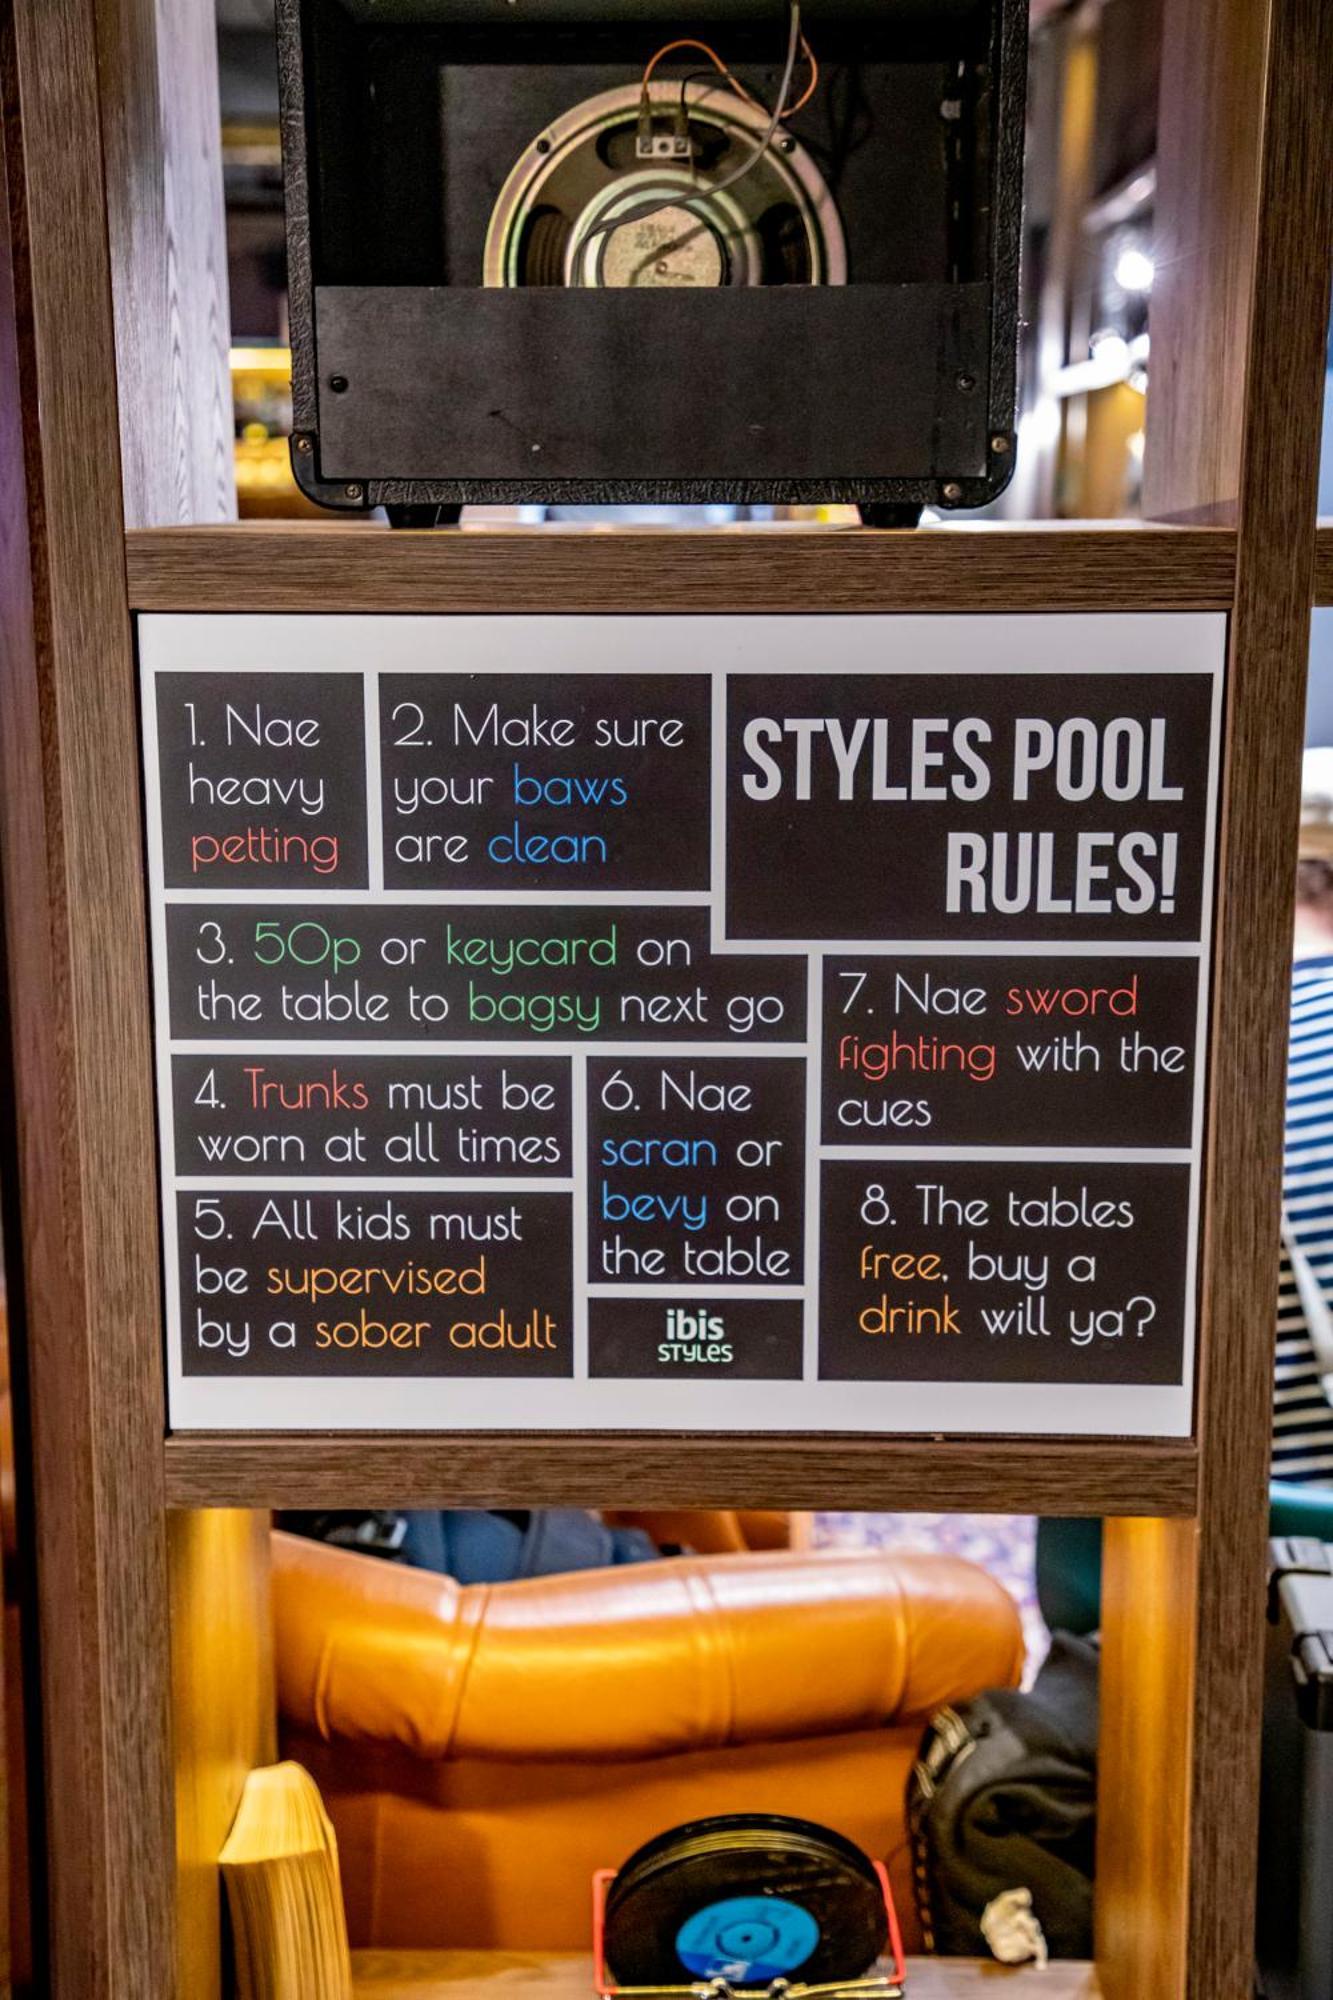 1. Nae
heavy
petting
2. Make sure
your baws
are clean
STYLES POOL
RULES!
3. 50p or keycard on
the table to bagsy next go
4. Trunks must be
worn at all times
5. All kids must
be supervised
by a sober adult
6. Nae
scran or
bevy on
the table
ibis
STYLES
7. Nae sword
fighting with the
cues
8. The tables
free, buy a
drink will ya?